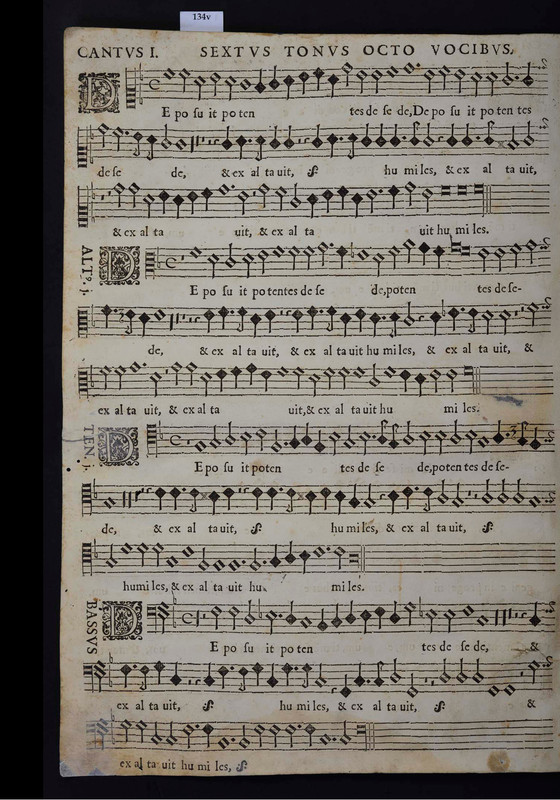 134v
CANTVS I. SEXTVS TONVS OCTO VOCIBVS.
D E po ſu it po ten tes de ſe de, De po ſu it po ten tes
de ſe de, & ex al ta uit, ÿ. hu mi les, & ex al ta uit,
& ex al ta uit, & ex al ta uit hu mi les.
ALTº. j.
D E po ſu it po tentes de ſe de, poten tes de ſe-
de, & ex al ta uit, & ex al ta uit hu mi les, & ex al ta uit, &
ex al ta uit, & ex al ta uit, & ex al ta uit hu mi les.
TEN. j.
D E po ſu it poten tes de ſe de, poten tes de ſe-
de, & ex al ta uit, ÿ. hu mi les, & ex al ta uit, ÿ.
humi les, & ex al ta uit hu mi les.
BASSVS
D E po ſu it po ten tes de ſe de, &
ex al ta uit, ÿ. hu mi les, & ex al ta uit, ÿ. &
ex al ta uit hu mi les, ÿ.